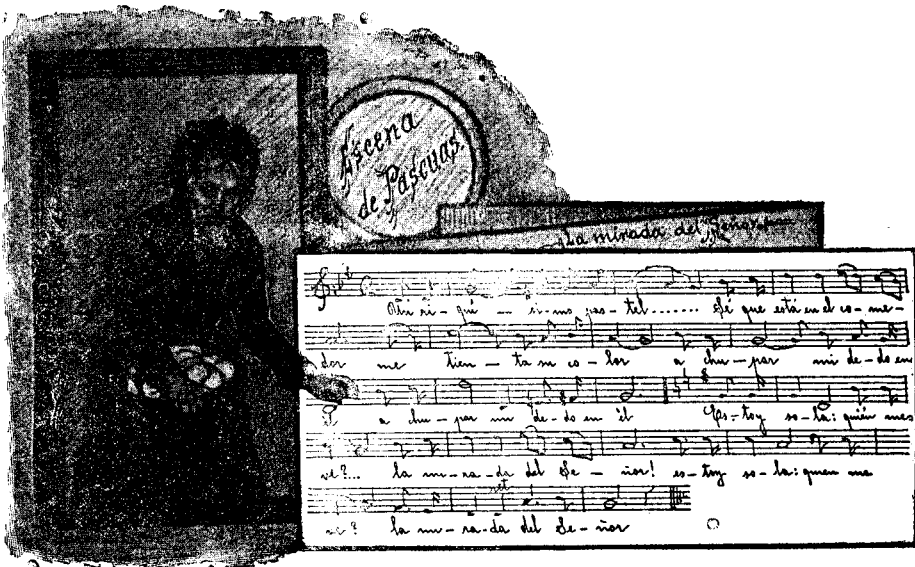 Escena
de Pascuas.
La mirada del Señor
ri - quí - si - mo pas - tel........ Sé que está en el co - me -
dor me tien - ta su co - lor a chu - par mi de - do en
él a chu - par mi de - do en él Es - toy so - la: quién me
ve?... la mi - ra - da del Se - ñor! es - toy so - la: quien me
ve? la mi - ra - da del Se - ñor